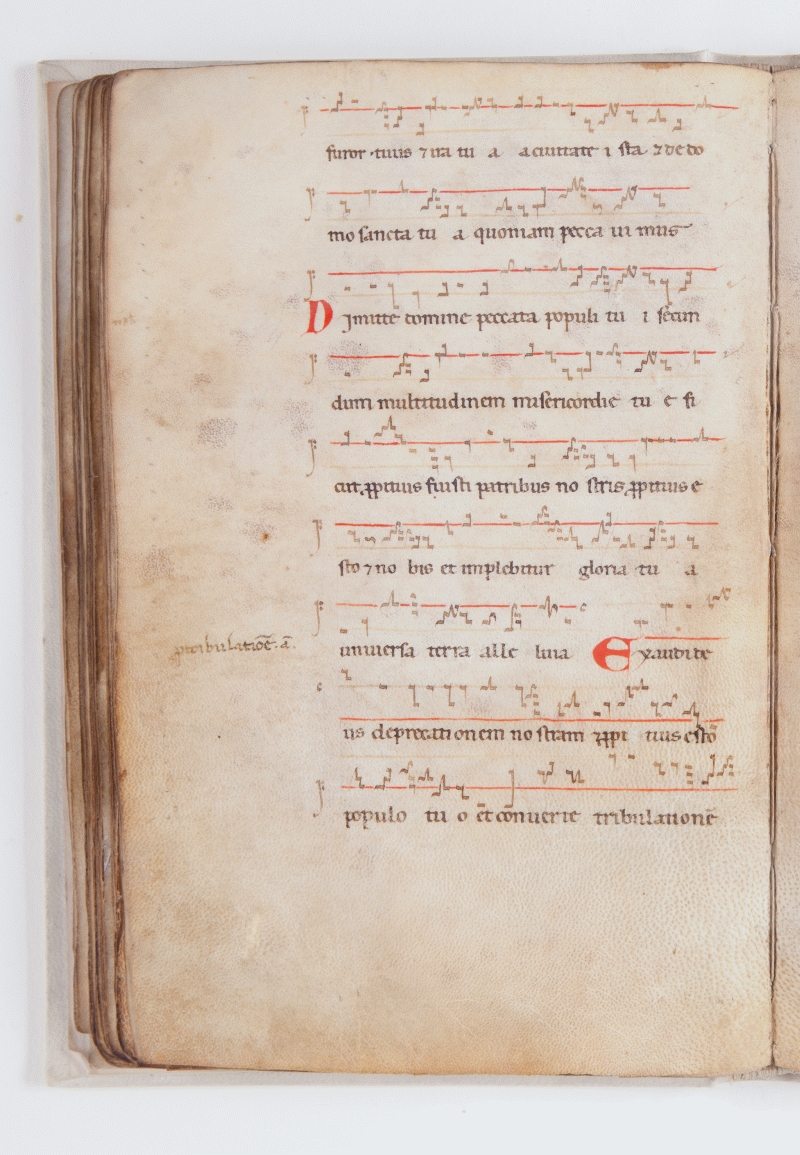 furor tuus ⁊ ira tu a a ciuitate i sta ⁊ de do
mo sancta tu a quoniam pecca ui mus
Dimitte domine peccata populi tu i secun
dum multitudinem misericordie tu e si
cut ꝓpitius fuisti patribus no stris ꝓpitius e
sto ⁊ no bis et implebitur gloria tu a
uniuersa terra alle luia Exaudi de
us deprecati onem no stram ⁊ ꝓpi tius esto
populo tu o et conuerte tribulationē
tribulatiōe. a.